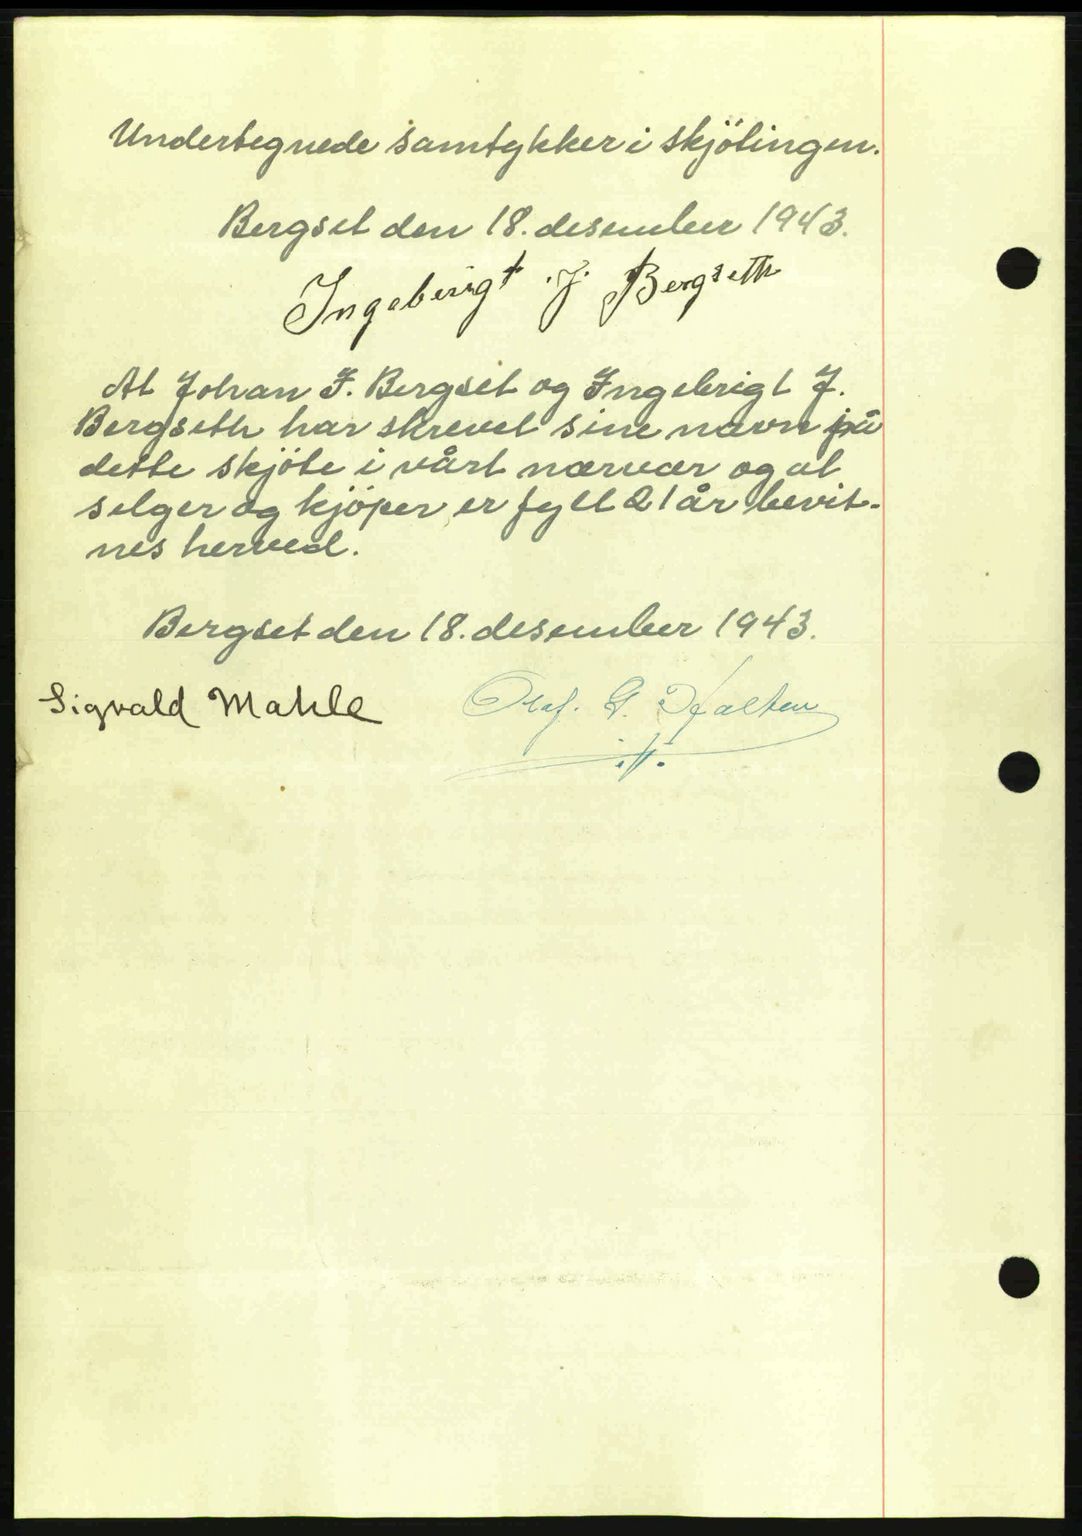 Undertegnede samtykker i skjötingen.
Bergset den 18. desember 1943.
Ingeberigt J. Bergseth
At Johan I. Bergset og Ingebrigt J.
Bergseth har skrevet sine navn på
dette skjöte i vårt nærvær og at
selger og kjöper er fyllt 21 år bevit-
nes herved.
Bergset den 18. desember 1943.
Sigvald Mahle Olaf. G.